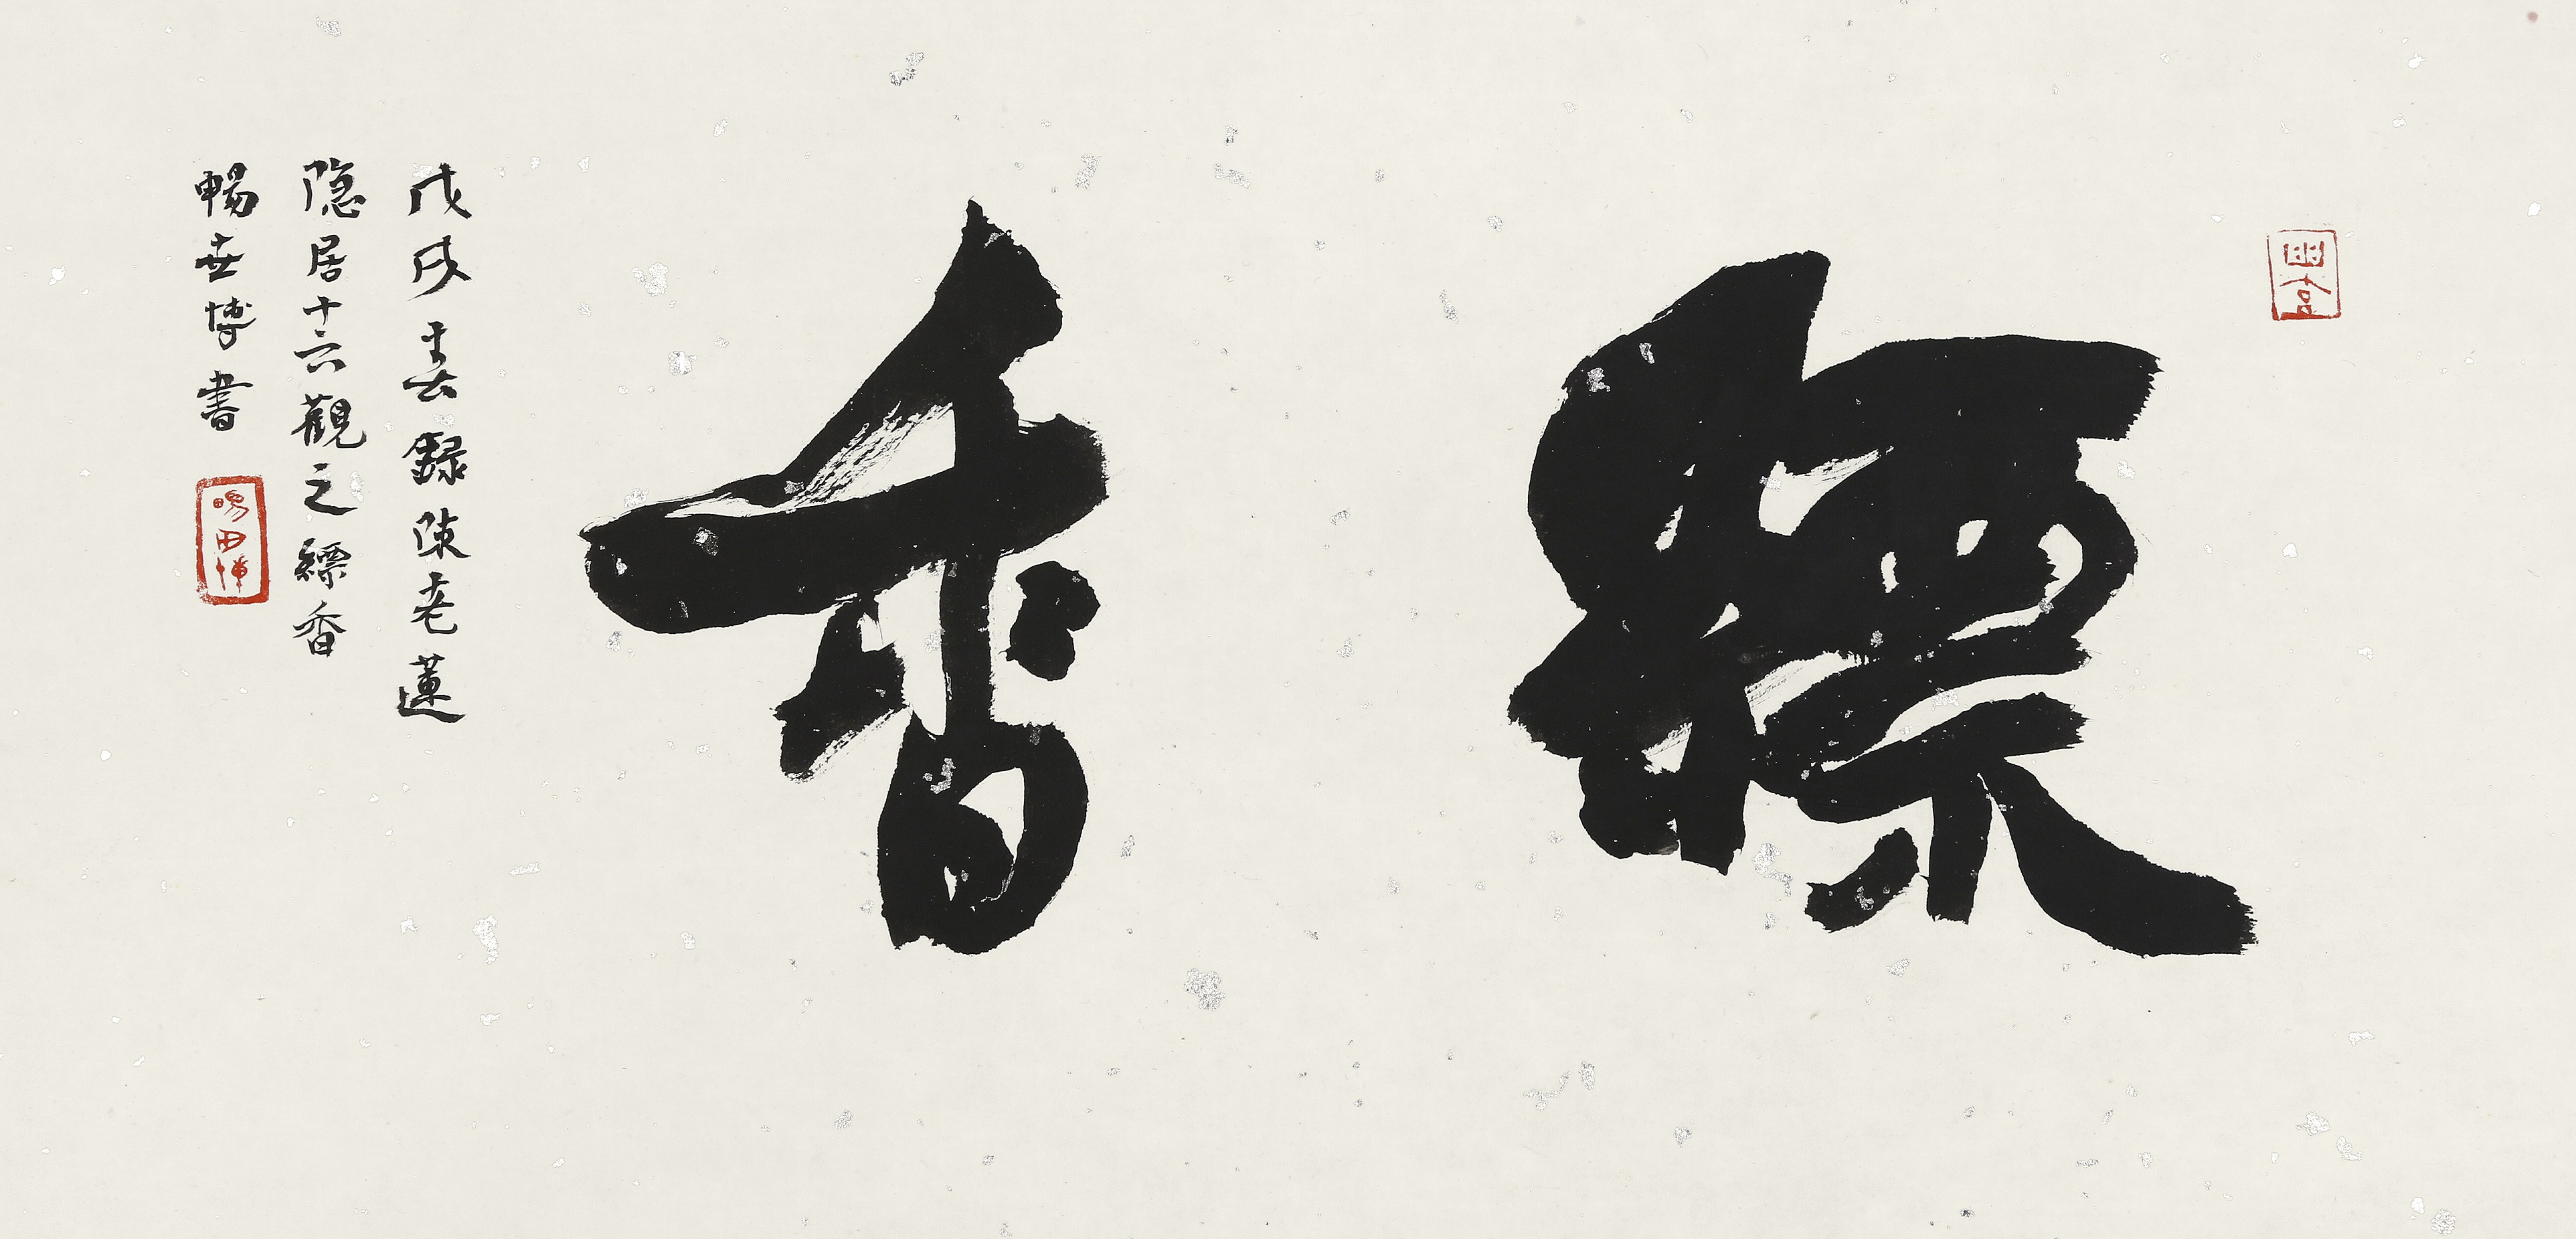 縹香
戊戌春錄陳老蓮
隐居十六觀之縹香
暢世博書